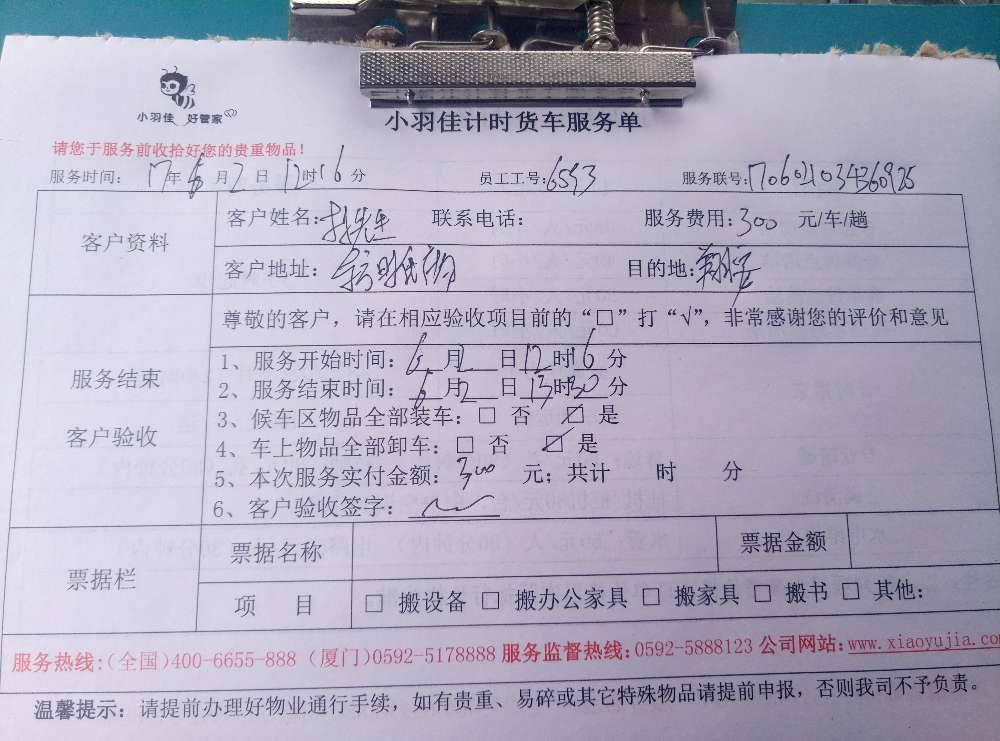 小羽佳 好管家
小羽佳计时货车服务单
请您于服务前收拾好您的贵重物品！
服务时间： 17年6月2日12时16分 员工工号:6593 服务联号:
客户资料
客户姓名: 先生 联系电话： 服务费用:300 元/车/趟
客户地址： 目的地:
服务结束
客户验收
尊敬的客户，请在相应验收项目前的“□”打“√”，非常感谢您的评价和意见
1、服务开始时间：6月2日12时16分
2、服务结束时间：6月2日13时30分
3、候车区物品全部装车：□ 否 ☑ 是
4、车上物品全部卸车：□ 否 ☑ 是
5、本次服务实付金额：300 元；共计 时 分
6、客户验收签字：
票据栏
票据名称 票据金额
项 目 □ 搬设备 □ 搬办公家具 □ 搬家具 □ 搬书 □ 其他：
服务热线:(全国)400-6655-888 (厦门)0592-5178888 服务监督热线:0592-5888123 公司网站:www.xiaoyujia.co
温馨提示：请提前办理好物业通行手续，如有贵重、易碎或其它特殊物品请提前申报，否则我司不予负责。